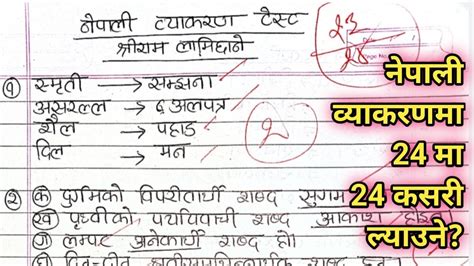 नेपाली व्याकरण टेस्ट
श्रीराम लामिछाने
23
२४
१) स्मृती → सम्झना
असरल्ल → अलपत्र
शैल → पहाड
दिल → मन
2
२) क) दुर्गमको विपरीतार्थी शब्द सुगम
ख) पृथ्वीको पर्यायवाची शब्द आकाश होइन
ग) लम्पट अनेकार्थी शब्द हो।
नेपाली
व्याकरणमा
24 मा
24 कसरी
ल्याउने?